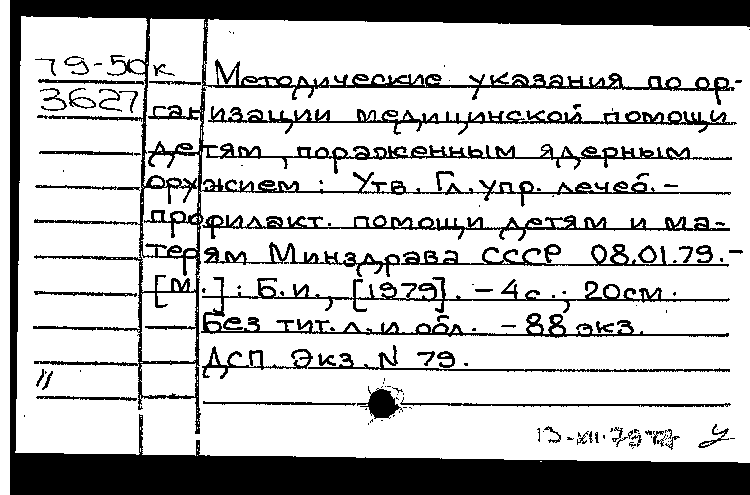 79-50к Методические указания по ор-
3627 ганизации медицинской помощи
детям, пораженным ядерным
оружием: Утв. Гл. упр. лечеб.-
профилакт. помощи детям и ма-
терям Минздрава СССР 08.01.79.-
[М.]: Б.и., [1979]. - 4с.; 20см.
Без тит. л. и обл. - 88 экз.
ДСП Экз. N 79.
13-XII-79